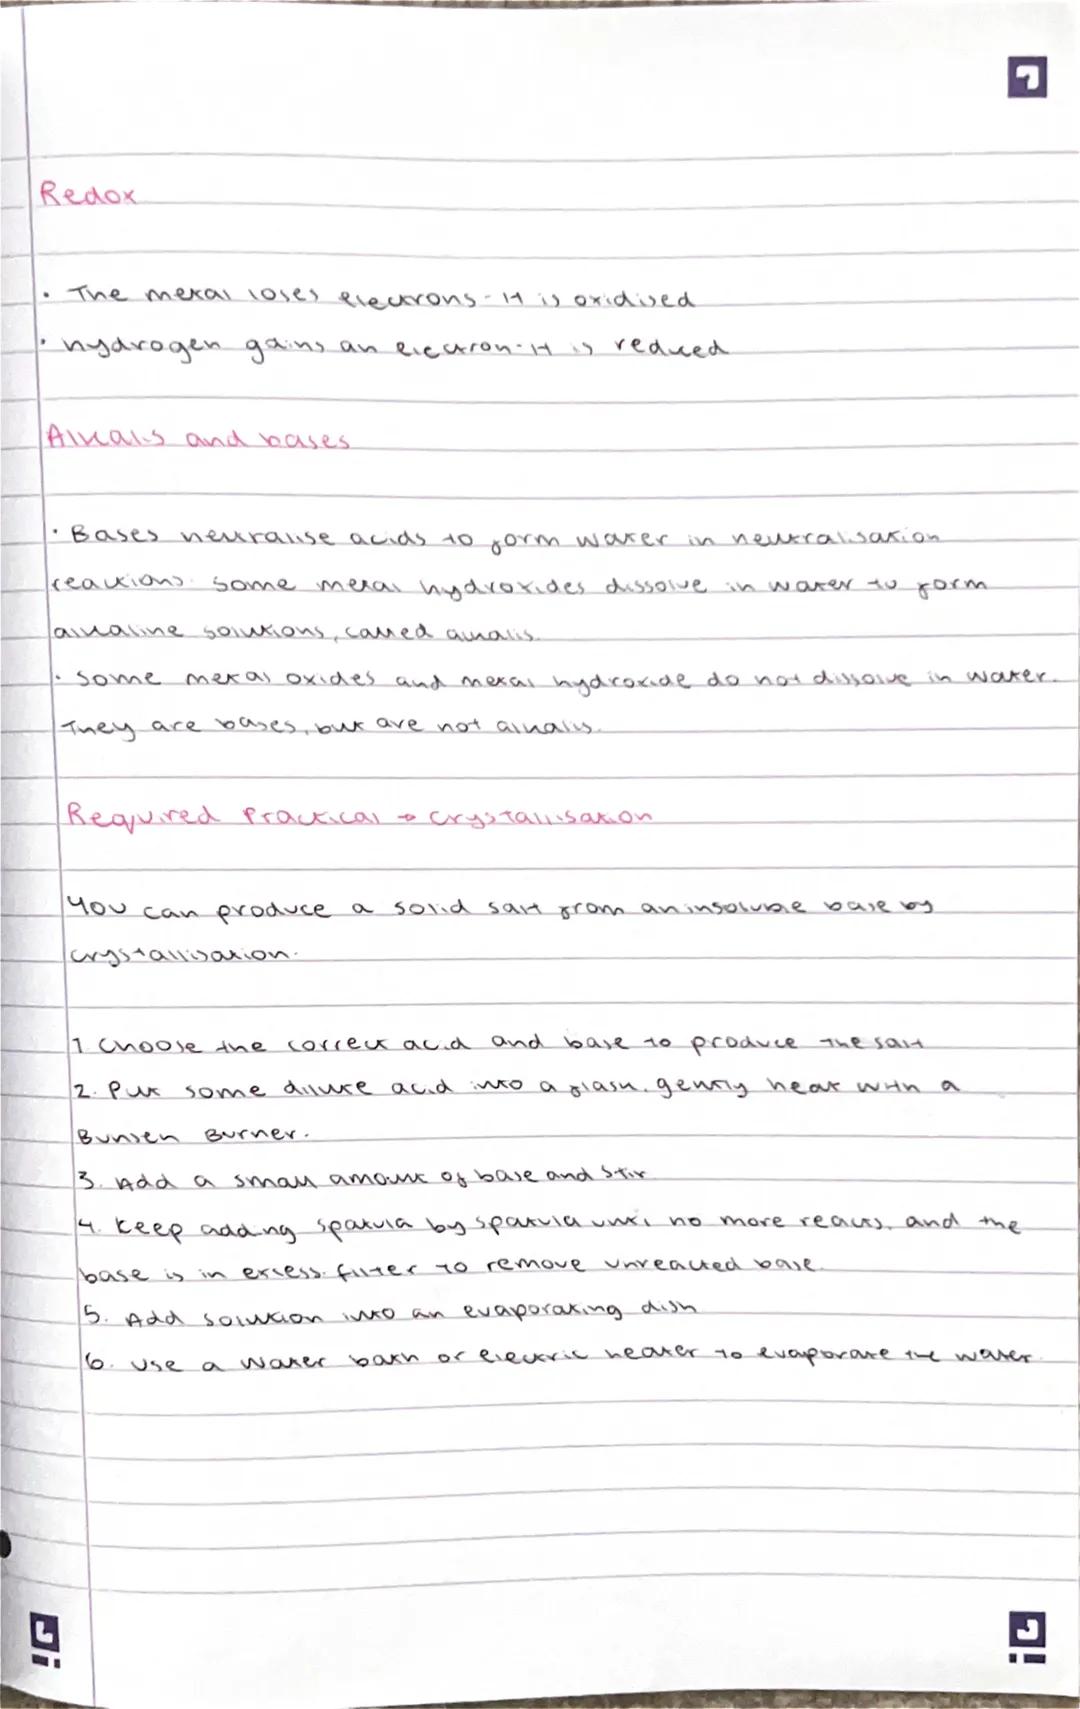 Redox
· The metal loses electrons - It is oxidised
· hydrogen gains an electron - It is reduced
Alkalis and bases
· Bases neutralise acids to form water in neutralisation
reactions. Some metal hydroxides dissolve in water to form
alkaline solutions, called alkalis.
· Some metal oxides and metal hydroxide do not dissolve in water.
They are bases, but are not alkalis.
Required Practical → Crystallisation
You can produce a solid salt from an insoluble base by
crystallisation.
1. Choose the correct acid and base to produce the salt
2. Put some dilute acid into a flask. gently heat with a
Bunsen Burner.
3. Add a small amount of base and stir
4. Keep adding spatula by spatula until no more reacts, and the
base is in excess. filter to remove unreacted base.
5. Add solution into an evaporating dish
6. Use a water bath or electric heater to evaporate the water.